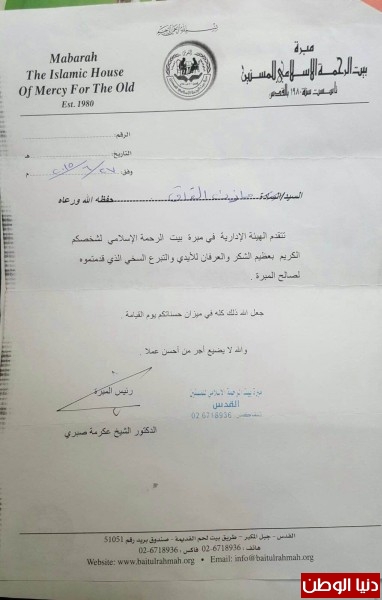 بسم الله الرحمن الرحيم
Mabarah
The Islamic House
Of Mercy For The Old
Est. 1980
مبرة
بيت الرحمة الإسلامي للمسنين
تأسست سنة ١٩٨٠ بالقدس
الرقم:
التاريخ: هـ
وفق ٢٠١٥/٦/٢٧ م
السيد/السيدة مازن القاق حفظه الله ورعاه
تتقدم الهيئة الإدارية في مبرة بيت الرحمة الإسلامي لشخصكم
الكريم بعظيم الشكر والعرفان للأيدي والتبرع السخي الذي قدمتموه
لصالح المبرة .
جعل الله ذلك كله في ميزان حسناتكم يوم القيامة .
والله لا يضيع أجر من أحسن عملا .
رئيس المبرة
الدكتور الشيخ عكرمة صبري
مبرة بيت الرحمة الاسلامي للمسنين
القدس
02 6718936
القدس - جبل المكبر - طريق بيت لحم القديمة - صندوق بريد رقم 51051
هاتف : 6718936-02 فاكس : 6718936-02
Website: www.baitulrahmah.org Email: info@baitulrahmah.org
دنيا الوطن